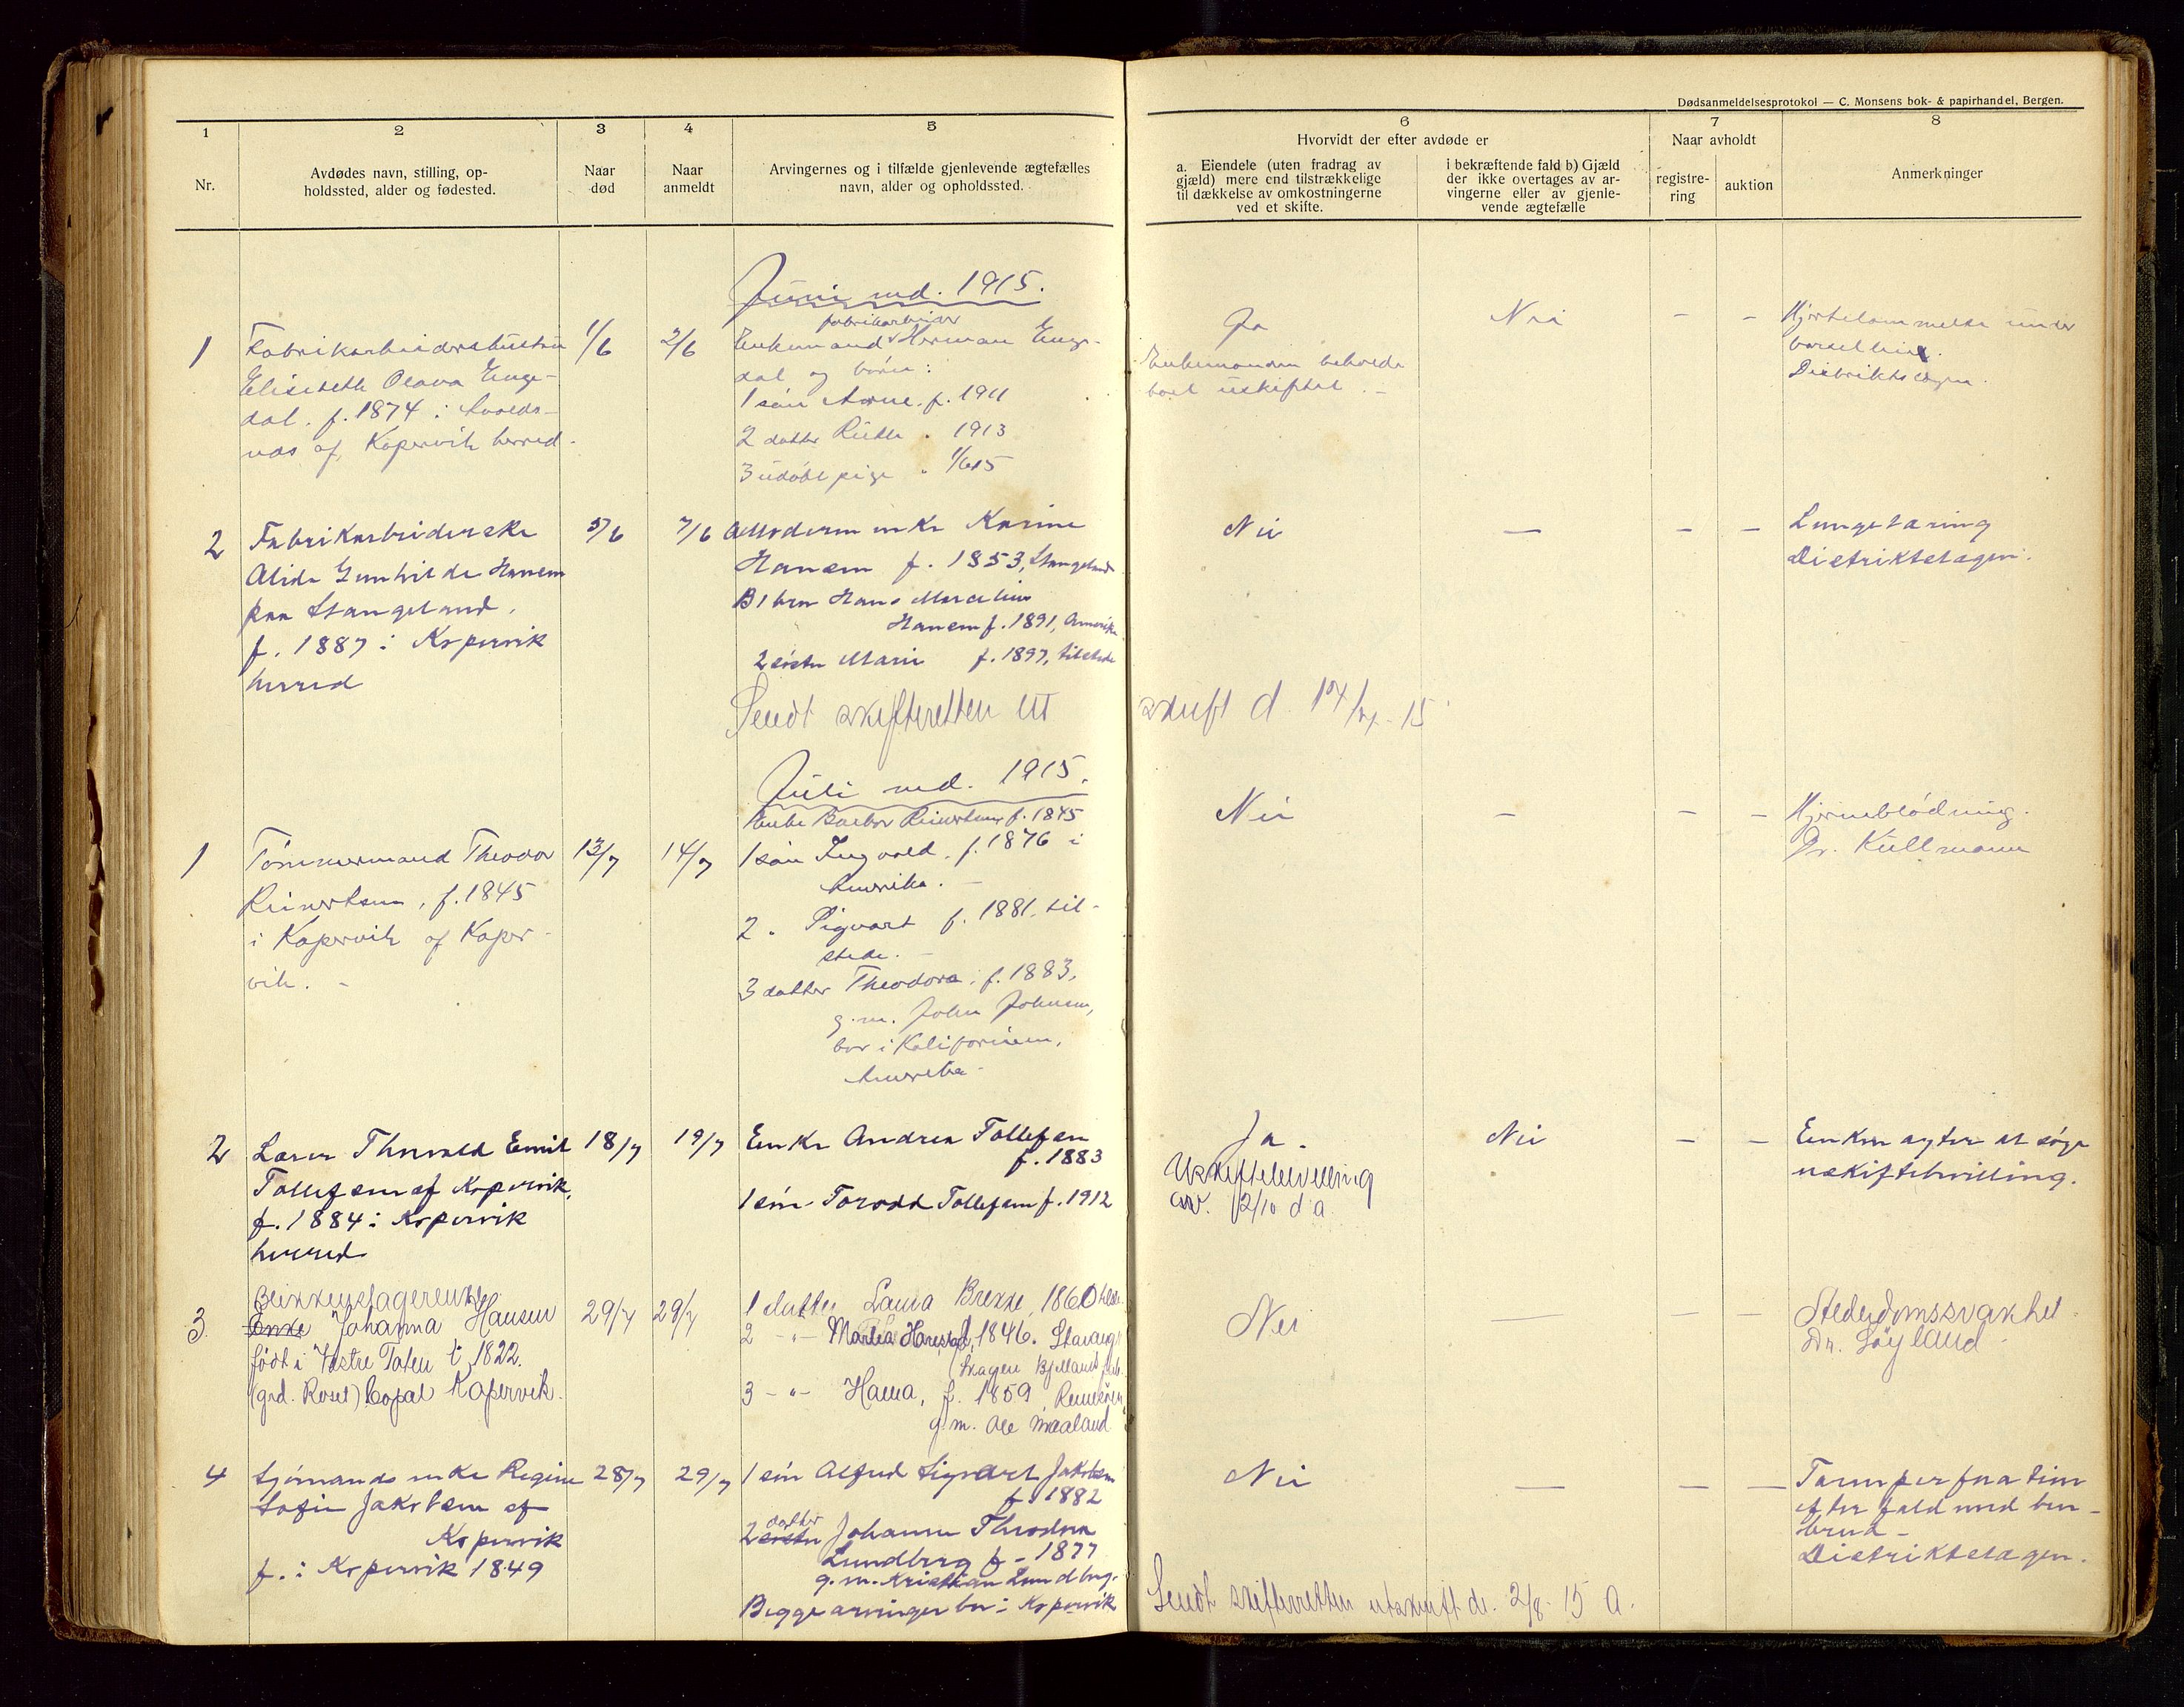 Dødsanmeldelsesprotokol — C. Monsens bok- & papirhandel, Bergen.
1 2 3 4 5 6 7 8
Nr.
Avdødes navn, stilling, op-
holdssted, alder og fødested.
Naar
død
Naar
anmeldt
Arvingernes og i tilfælde gjenlevende ægtefælles
navn, alder og opholdssted.
Hvorvidt der efter avdøde er
a. Eiendele (uten fradrag av
gjæld) mere end tilstrækkelige
til dækkelse av omkostningerne
ved et skifte.
i bekræftende fald b) Gjæld
der ikke overtages av ar-
vingerne eller av gjenle-
vende ægtefælle
Naar avholdt
registre-
ring
auktion
Anmerkninger
Juni md. 1915.
1
Fabrikarbeiderhustru
Elisabeth Olava Enge-
dal. f. 1874 i
nes af Kopervik herred.
1/6
2/6
fabrikarbeider
Enkemand Herman Enge-
dal og børn:
1 søn Arne. f. 1911
2 datter Ruth " 1913
3 udøbt pige " 1/6 15
Ja
Enkemanden beholder
boet uskiftet. -
Nei
-
-
Hjertelammelse under
barselseng.
Distriktslægen.
2
Fabrikarbeiderske
Alida Gunhilda Hansen
paa Stangeland,
f. 1887 i Kopervik
herred
5/6
7/6
A Moderen enke Karine
Hansen f. 1853, Stangeland
B 1 bror Hans Marselius
Hansen f. 1891, Amerika
2 søster Marie f. 1897, tilstede
Nei
—
-
-
Lungetæring
Distriktslægen.
Sendt skifteretten ut
skrift d. 14/7-15
Juli md. 1915.
1
Tømmermand Theodor
Reinertsen, f. 1845
i Kopervik af Koper-
vik. -
13/7
14/7
Enke Barbro Reinertsen f. 1845
1 søn Ingvald, f. 1876 i
Amerika. -
2 " Sigvart f. 1881, til-
stede. -
3 datter Theodora, f. 1883,
g.m. John Johnsen,
bor i Kalifornien,
Amerika -
Nei
-
-
-
Hjerneblødning.
Dr. Kullmann
2
Lærer Thorvald Emil
Tollefsen af Kopervik,
f. 1884 i Kopervik
herred
18/7
19/7
Enke Andrea Tollefsen
f. 1883
1 søn Torodd Tollefsen f. 1912
Ja.
Uskiftebevilling
av. 2/10 d.a.
Nei
-
-
Enken agter at søge
uskiftebevilling.
3
Blikkenslagerenke
Enke Johanna Hansen
født i Vestre Toten i 1822.
(grd. Roset) bopæl Kopervik.
29/7
29/7
1 datter Laura Brekke, 1860
2 -"- Martea Harestad, 1846. Stavanger
(Skagen
3 -"- Hanna, f. 1859, Rennesøen
g.m. Ole Maaland
Nei
—
—
-
Alderdomssvakhet
Dr. Løyland
4
Sjømands enke Regine
Sofie Jakobsen af
Kopervik
f. i Kopervik 1849
28/7
29/7
1 søn Alfred Sigvart Jakobsen
f. 1882
datter
2 søster Johanne Theodora
Lundberg f. 1877
g.m. Kristian Lundberg.
Begge arvinger bor i Kopervik
Nei
—
—
—
Tarmperforation
efter fald med ben-
brud -
Distriktslægen.
Sendt skifteretten utskrift d. 2/8-15 A.